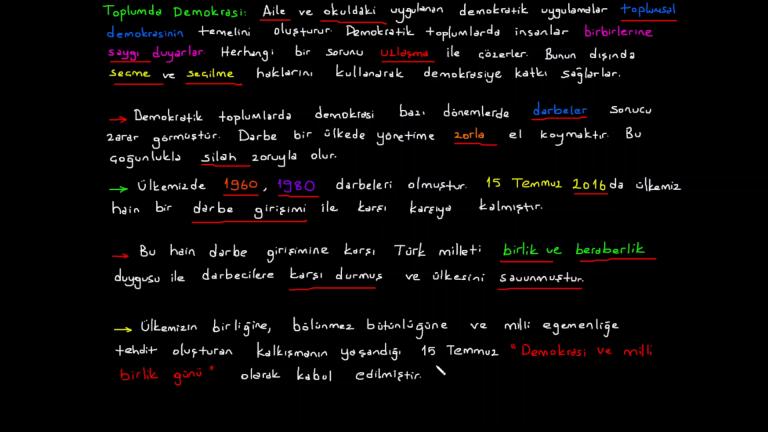 Toplumda Demokrasi: Aile ve okuldaki uygulanan demokratik uygulamalar toplumsal
demokrasinin temelini oluşturur. Demokratik toplumlarda insanlar birbirlerine
saygı duyarlar. Herhangi bir sorunu uzlaşma ile çözerler. Bunun dışında
seçme ve seçilme haklarını kullanarak demokrasiye katkı sağlarlar.
→ Demokratik toplumlarda demokrasi bazı dönemlerde darbeler sonucu
zarar görmüştür. Darbe bir ülkede yönetime zorla el koymaktır. Bu
çoğunlukla silah zoruyla olur.
→ Ülkemizde 1960, 1980 darbeleri olmuştur. 15 Temmuz 2016 da ülkemiz
hain bir darbe girişimi ile karşı karşıya kalmıştır.
→ Bu hain darbe girişimine karşı Türk milleti birlik ve beraberlik
duygusu ile darbecilere karşı durmuş ve ülkesini savunmuştur.
→ Ülkemizin birliğine, bölünmez bütünlüğüne ve milli egemenliğe
tehdit oluşturan kalkışmanın yaşandığı 15 Temmuz "Demokrasi ve milli
birlik günü" olarak kabul edilmiştir.